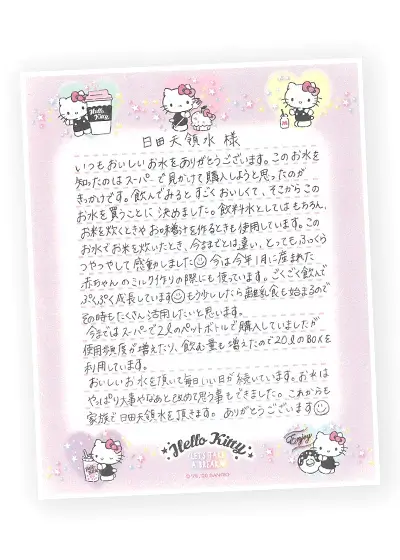 Hello Kitty
日田天領水 様
いつもおいしいお水をありがとうございます。このお水を
知ったのはスーパーで見かけて購入しようと思ったのが
きっかけです。飲んでみるとすごくおいしくて、そこからこの
お水を買うことに決めました。飲料水としてはもちろん、
お米を炊くときやお味噌汁を作るときも使用しています。この
お水でお米を炊いたとき、今までとは違い、とってもふっくら
つやつやして感動しました☺今は今年1月に産まれた
赤ちゃんのミルク作りの際にも使っています。ごくごく飲んで
ぷくぷく成長しています☺もう少ししたら離乳食も始まるので
その時もたくさん活用したいと思います。
今まではスーパーで2Lのペットボトルで購入していましたが
使用頻度が増えたり、飲む量も増えたので20Lの
利用しています。
おいしいお水を頂いて毎日いい日が続いています。お水は
やっぱり大事やなあと改めて思う事もできました。これからも
家族で日田天領水を頂きます。ありがとうございます☺
Hello Kitty
LET'S TAKE
A BREAK
Enjoy